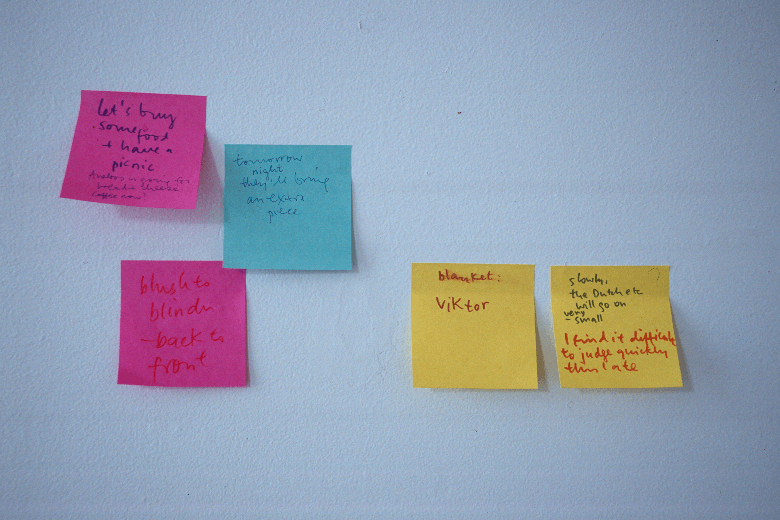 let's buy
some food
+ have a
picnic
is going to
coffee now
tomorrow
night
they'll bring
an extra
blush to
blindu
- back to
front
blanket:
Viktor
slowly,
the Dutch etc
will go on
very
- small
I find it difficult
to judge quickly
this late